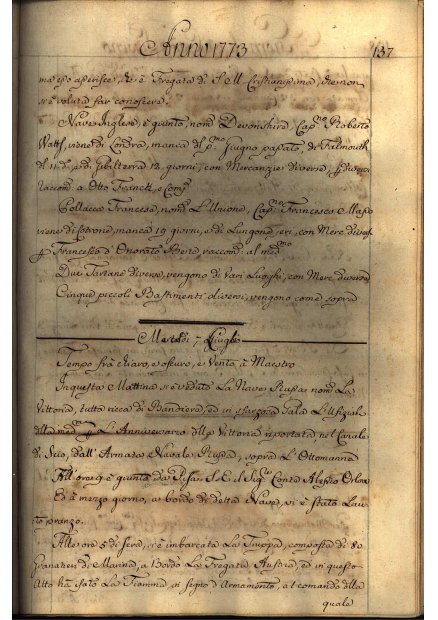 Anno 1773
137
ma esso asserisce, che è Fregata di S. M. Cristianissima, che non
si è voluta far conoscere.
Nave Inglese, è giunto, nom.ta Devonshire, Cap.no Roberto
Watts, viene di Londra, manca dal p.mo Giugno passato, da Falmouth
di 11. d.o e di Gibilterra 12. giorni, con Mercanzie diverse,
raccom: a Otto Franck, e Comp.
Pollacca Francese, nom.ta L'Unione, Cap.no Francesco
viene di Cotrone, manca 19 giorni, e di Longone, ieri, con Merc: diverse
Francesco d'Onorato Berte raccom: al med.mo
Due Tartane diverse, vengono di vari Luoghi, con Merc: diverse
Cinque piccoli Bastimenti diversi, vengono come sopra
Martedi 7 Luglio
Tempo frà chiaro, e oscuro, e Vento à Maestro
In questa Mattina si è veduta La Nave Russa nom.ta La
Vittoria, tutta ricca di Bandiere, ed in sfarzosa Gala L'Ufiziale
della med.ma p L'Anniversario della Vittoria riportata nel Canale
di Scio, dall'Armata Navale Russa, sopra L'Ottomanna
All'ore 9 è giunto da Pisa S. E. il Sig.re Conte Alessio Orlow
Ed à mezzo giorno, a bordo di detta Nave, vi è stato Lau-
to pranzo.
All'ore 5 di sera, si è imbarcata La Truppa, composta di 80
Granatieri di Marina, a Bordo La Fregata Austria, ed in questo
Atto hà fatto La Fiamma in segno d'Armamento, al comando della
quale